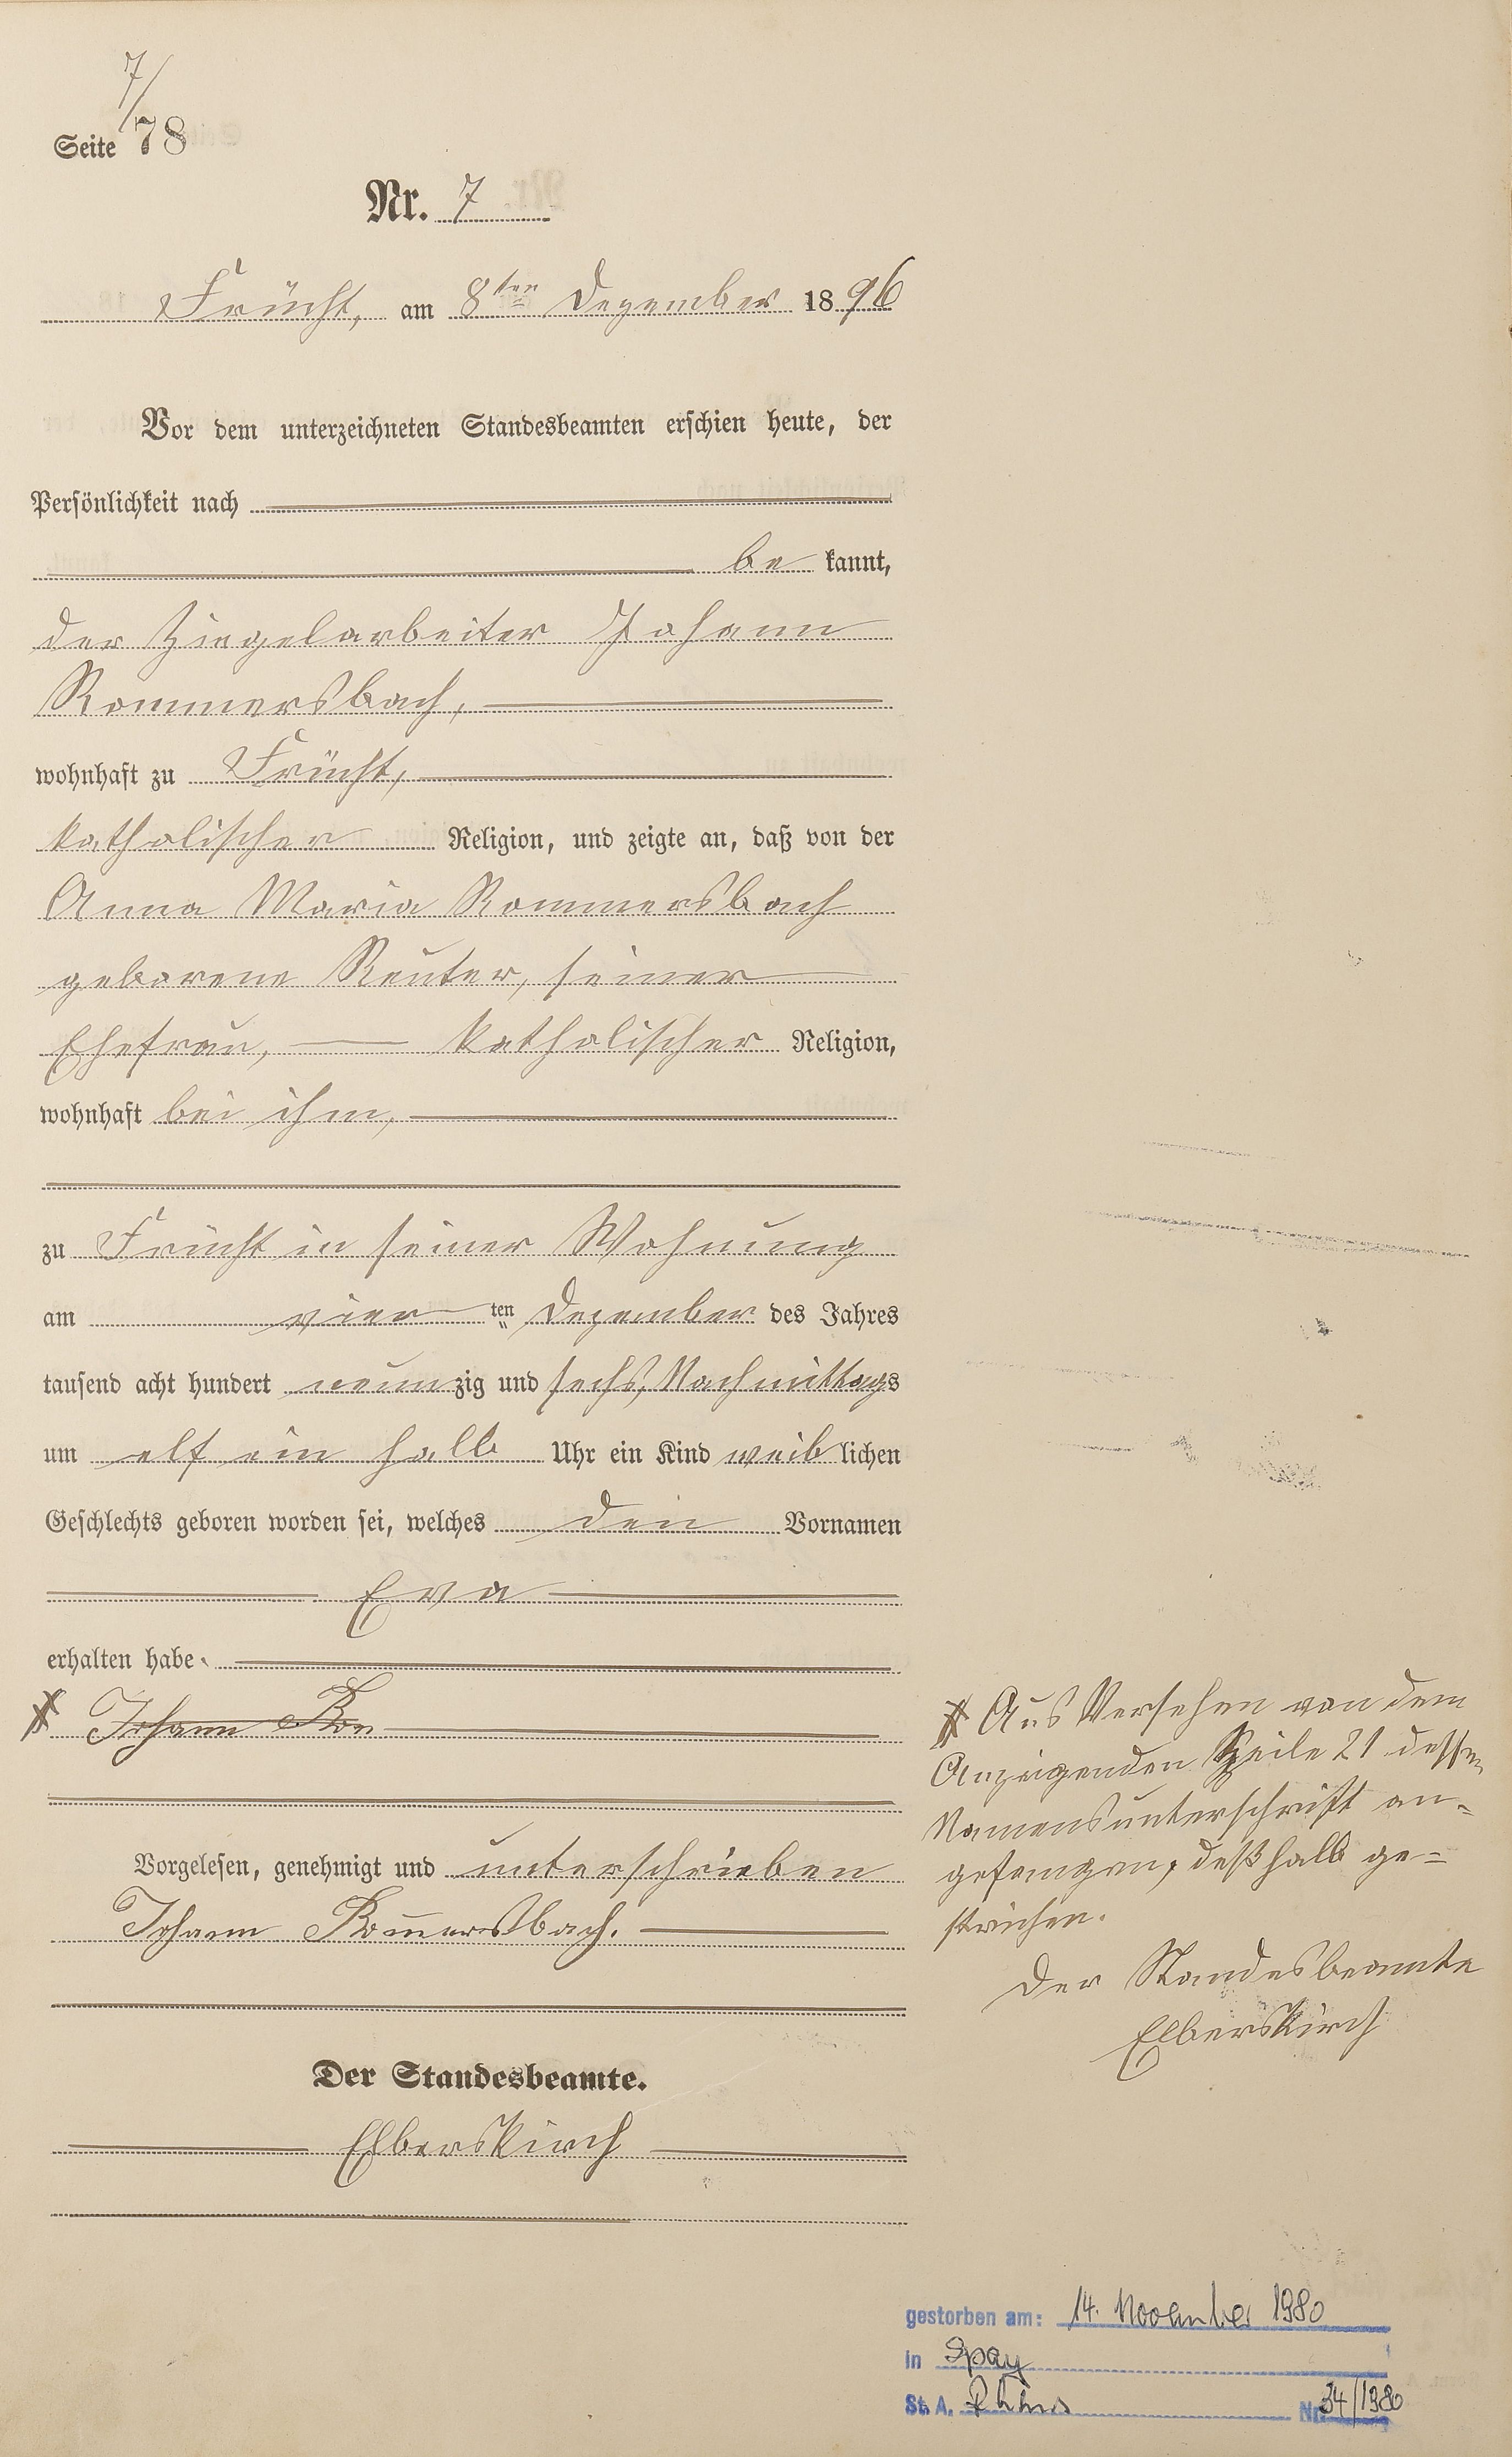 7/
Seite 78
Nr. 7
Frücht, am 8ten Dezember 1896
Vor dem unterzeichneten Standesbeamten erschien heute, der
Persönlichkeit nach
be kannt,
der Ziegelarbeiter Johann
Rommersbach,
wohnhaft zu Frücht,
katholischer Religion, und zeigte an, daß von der
Anna Maria Rommersbach
geborene Reuter, seiner
Ehefrau, katholischer Religion,
wohnhaft bei ihm,
zu Frücht in seiner Wohnung
am vier ten Dezember des Jahres
tausend acht hundert neunzig und sechs, Nachmittags
um elf ein halb Uhr ein Kind weiblichen
Geschlechts geboren worden sei, welches den Vornamen
Eva
erhalten habe.
Johann Rom
Vorgelesen, genehmigt und unterschrieben
Johann Rom̄ersbach.
Der Standesbeamte.
Elberskirch
Aus Versehen von dem
Anzeigenden Zeile 21 dessen
Namensunterschrift an-
gefangen, deßhalb ge-
strichen.
Der Standesbeamte
Elberskirch
gestorben am: 14. November 1980
in Spay
St. A. Rhens Nr. 34/1980